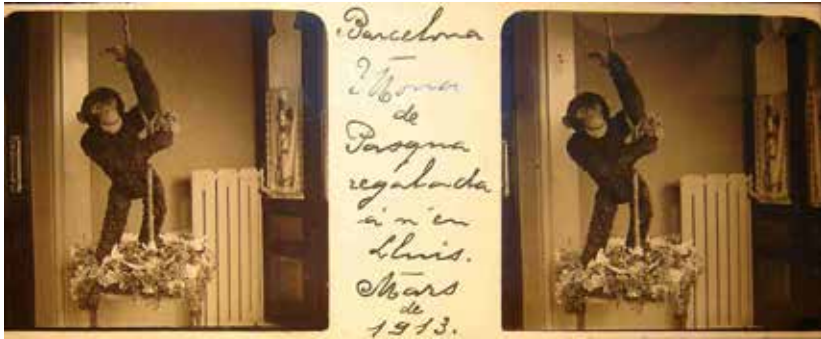 Barcelona
Mona
de
Pasqua
regalada
a n' en
Lluis.
Mars
de
1913.